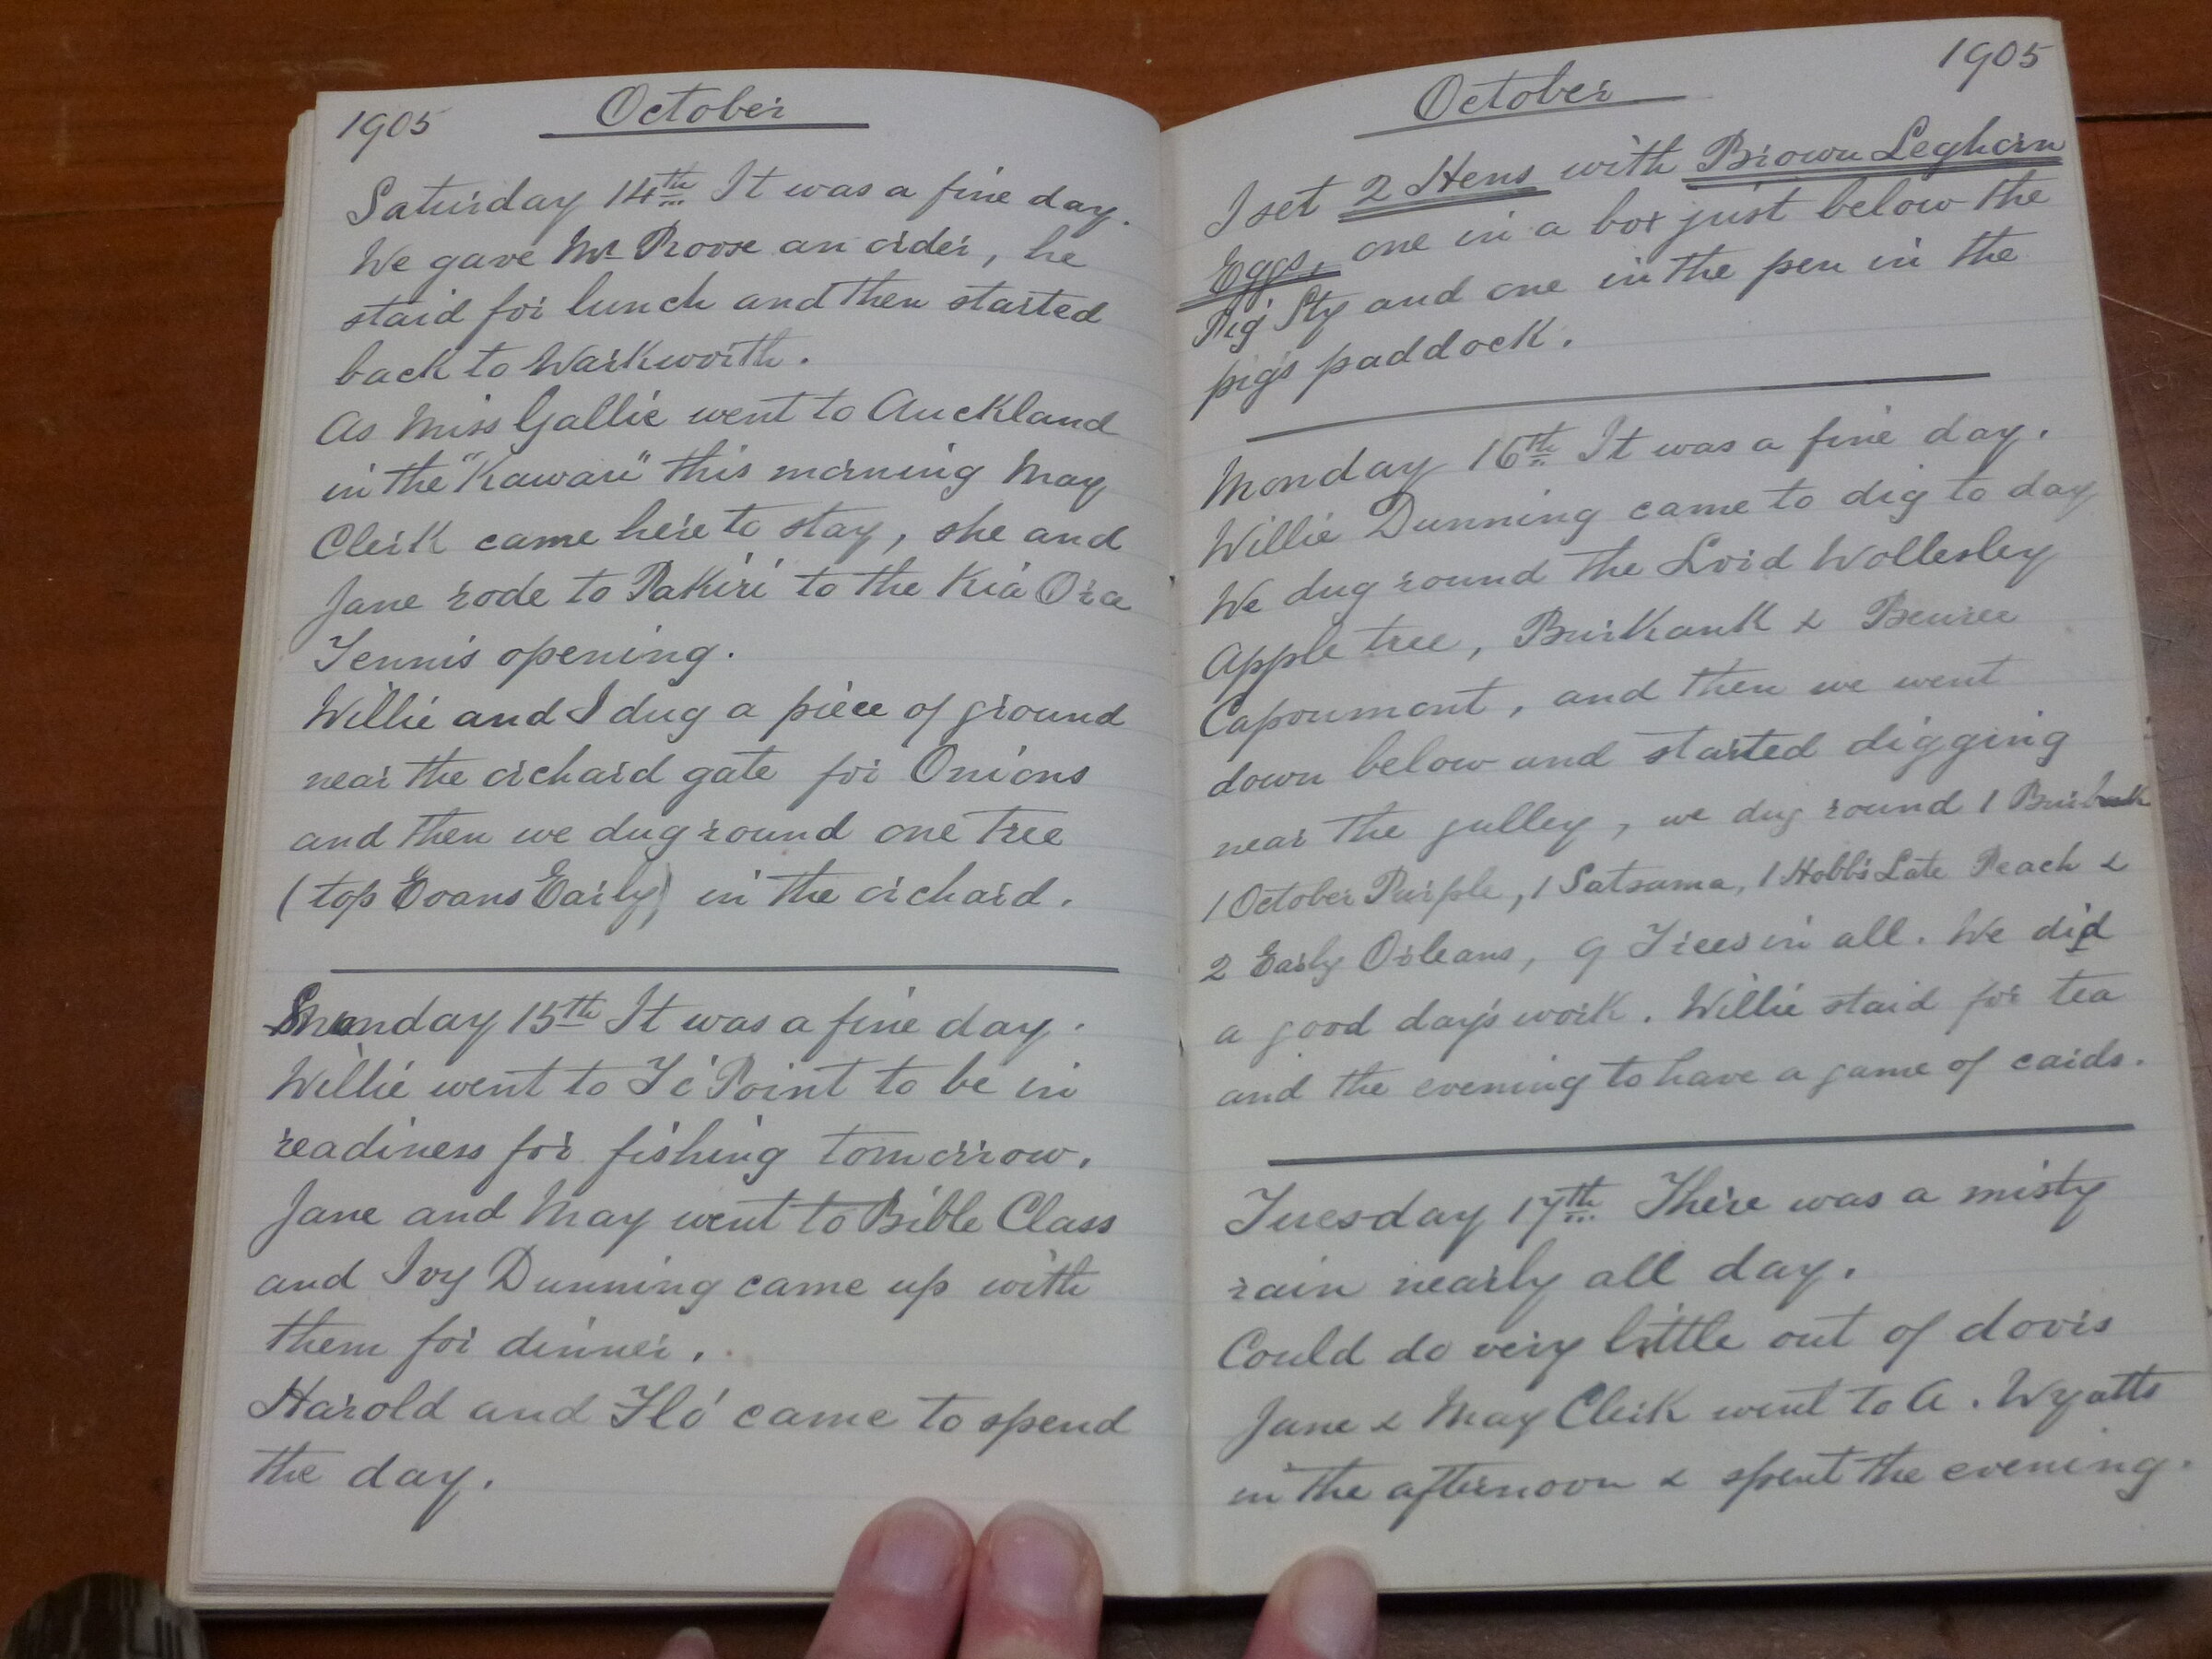 1905 October
Saturday 14th It was a fine day.
We gave Mr Roose an order, he
staid for lunch and then started
back to Warkworth.
As Miss Gallie went to Auckland
in the "Kawau" this morning May
Clerk came here to stay, she and
Jane rode to Pakiri to the Kia Ora
Tennis opening.
Willie and I dug a piece of ground
near the orchard gate for Onions
and then we dug round one tree
(top Evans Early) in the orchard.
Sunday 15th It was a fine day.
Willie went to Ti Point to be in
readiness for fishing tomorrow.
Jane and May went to Bible Class
and Ivy Dunning came up with
them for dinner.
Harold and Flo' came to spend
the day.
October 1905
I set 2 Hens with Brown Leghorn
Eggs, one in a box just below the
Pig Sty and one in the pen in the
pigs paddock.
Monday 16th It was a fine day.
Willie Dunning came to dig to day
We dug round the Lord Wollesley
Apple tree, Burkank & Beurre
Capoumont, and then we went
down below and started digging
near the gulley, we dug round 1 Burbank
1 October Purple, 1 Satsuma, 1 Hobb's Late Peach &
2 Early Orleans, 9 Trees in all. We did
a good day's work. Willie staid for tea
and the evening to have a game of cards.
Tuesday 17th There was a misty
rain nearly all day.
Could do very little out of doors
Jane & May Clerk went to A. Wyatts
in the afternoon & spent the evening.